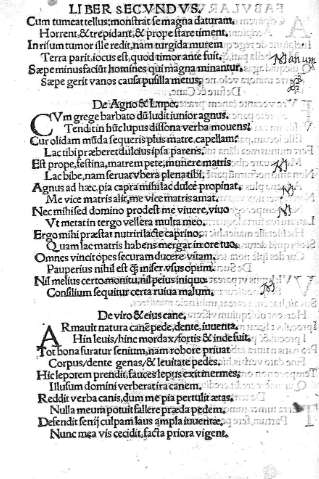 LIBER SECVNDVS.
Cum tumeat tellus: monstrat se magna daturam.
Horrent, & trepidant, & prope stare timent.
In risum tumor ille redit, nam turgida murem
Terra parit. iocus est, quod timor ante fuit.
Sæpe minus faciũt homines qui magna minantur,
Sæpe gerit vanos causa pusilla metus.
De Agno & Lupo.
CVm grege barbato dũ ludit iunior agnus.
Tendit in hũc lupus dissona verba mouens:
Cur olidam mũda sequeris plus matre, capellam?
Lac tibi præberet dulcius ipsa parens.
Est prope, festina, matrem pete, munere matris
Lac bibe, nam seruat vbera plena tibi.
Agnus ad hæc. pia capra mihi lac dulce propinat,
Me vice matris alit, me vice matris amat.
Nec mihi sed domino prodest me viuere, viuo
Vt metat in tergo vellera multa meo.
Ergo mihi præstat nutriri lacte caprino,
Quam lac matris habens mergar in ore tuo.
Omnes vincit opes securam ducere vitam,
Pauperius nihil est q̃ miser vsus opum.
Nil melius certo monitu, nil peius iniquo:
Consilium sequitur certa ruina malum.
De viro & eius cane.
ARmauit natura canẽ pede, dente, iuuenta.
Hin leuis/ hinc mordax/ fortis & inde fuit.
Tot bona furatur senium, nam robore priuat
Corpus/ dente genas/ & leuitate pedes.
Hic leporem prendit, fauces lepus exit inermes,
Illusum domini verberat ira canem.
Reddit verba canis, dum me pia pertulit ætas,
Nulla meum potuit fallere præda pedem.
Defendit senij culpam laus ampla iuuentæ,
Nunc mea vis cecidit, facta priora vigent.